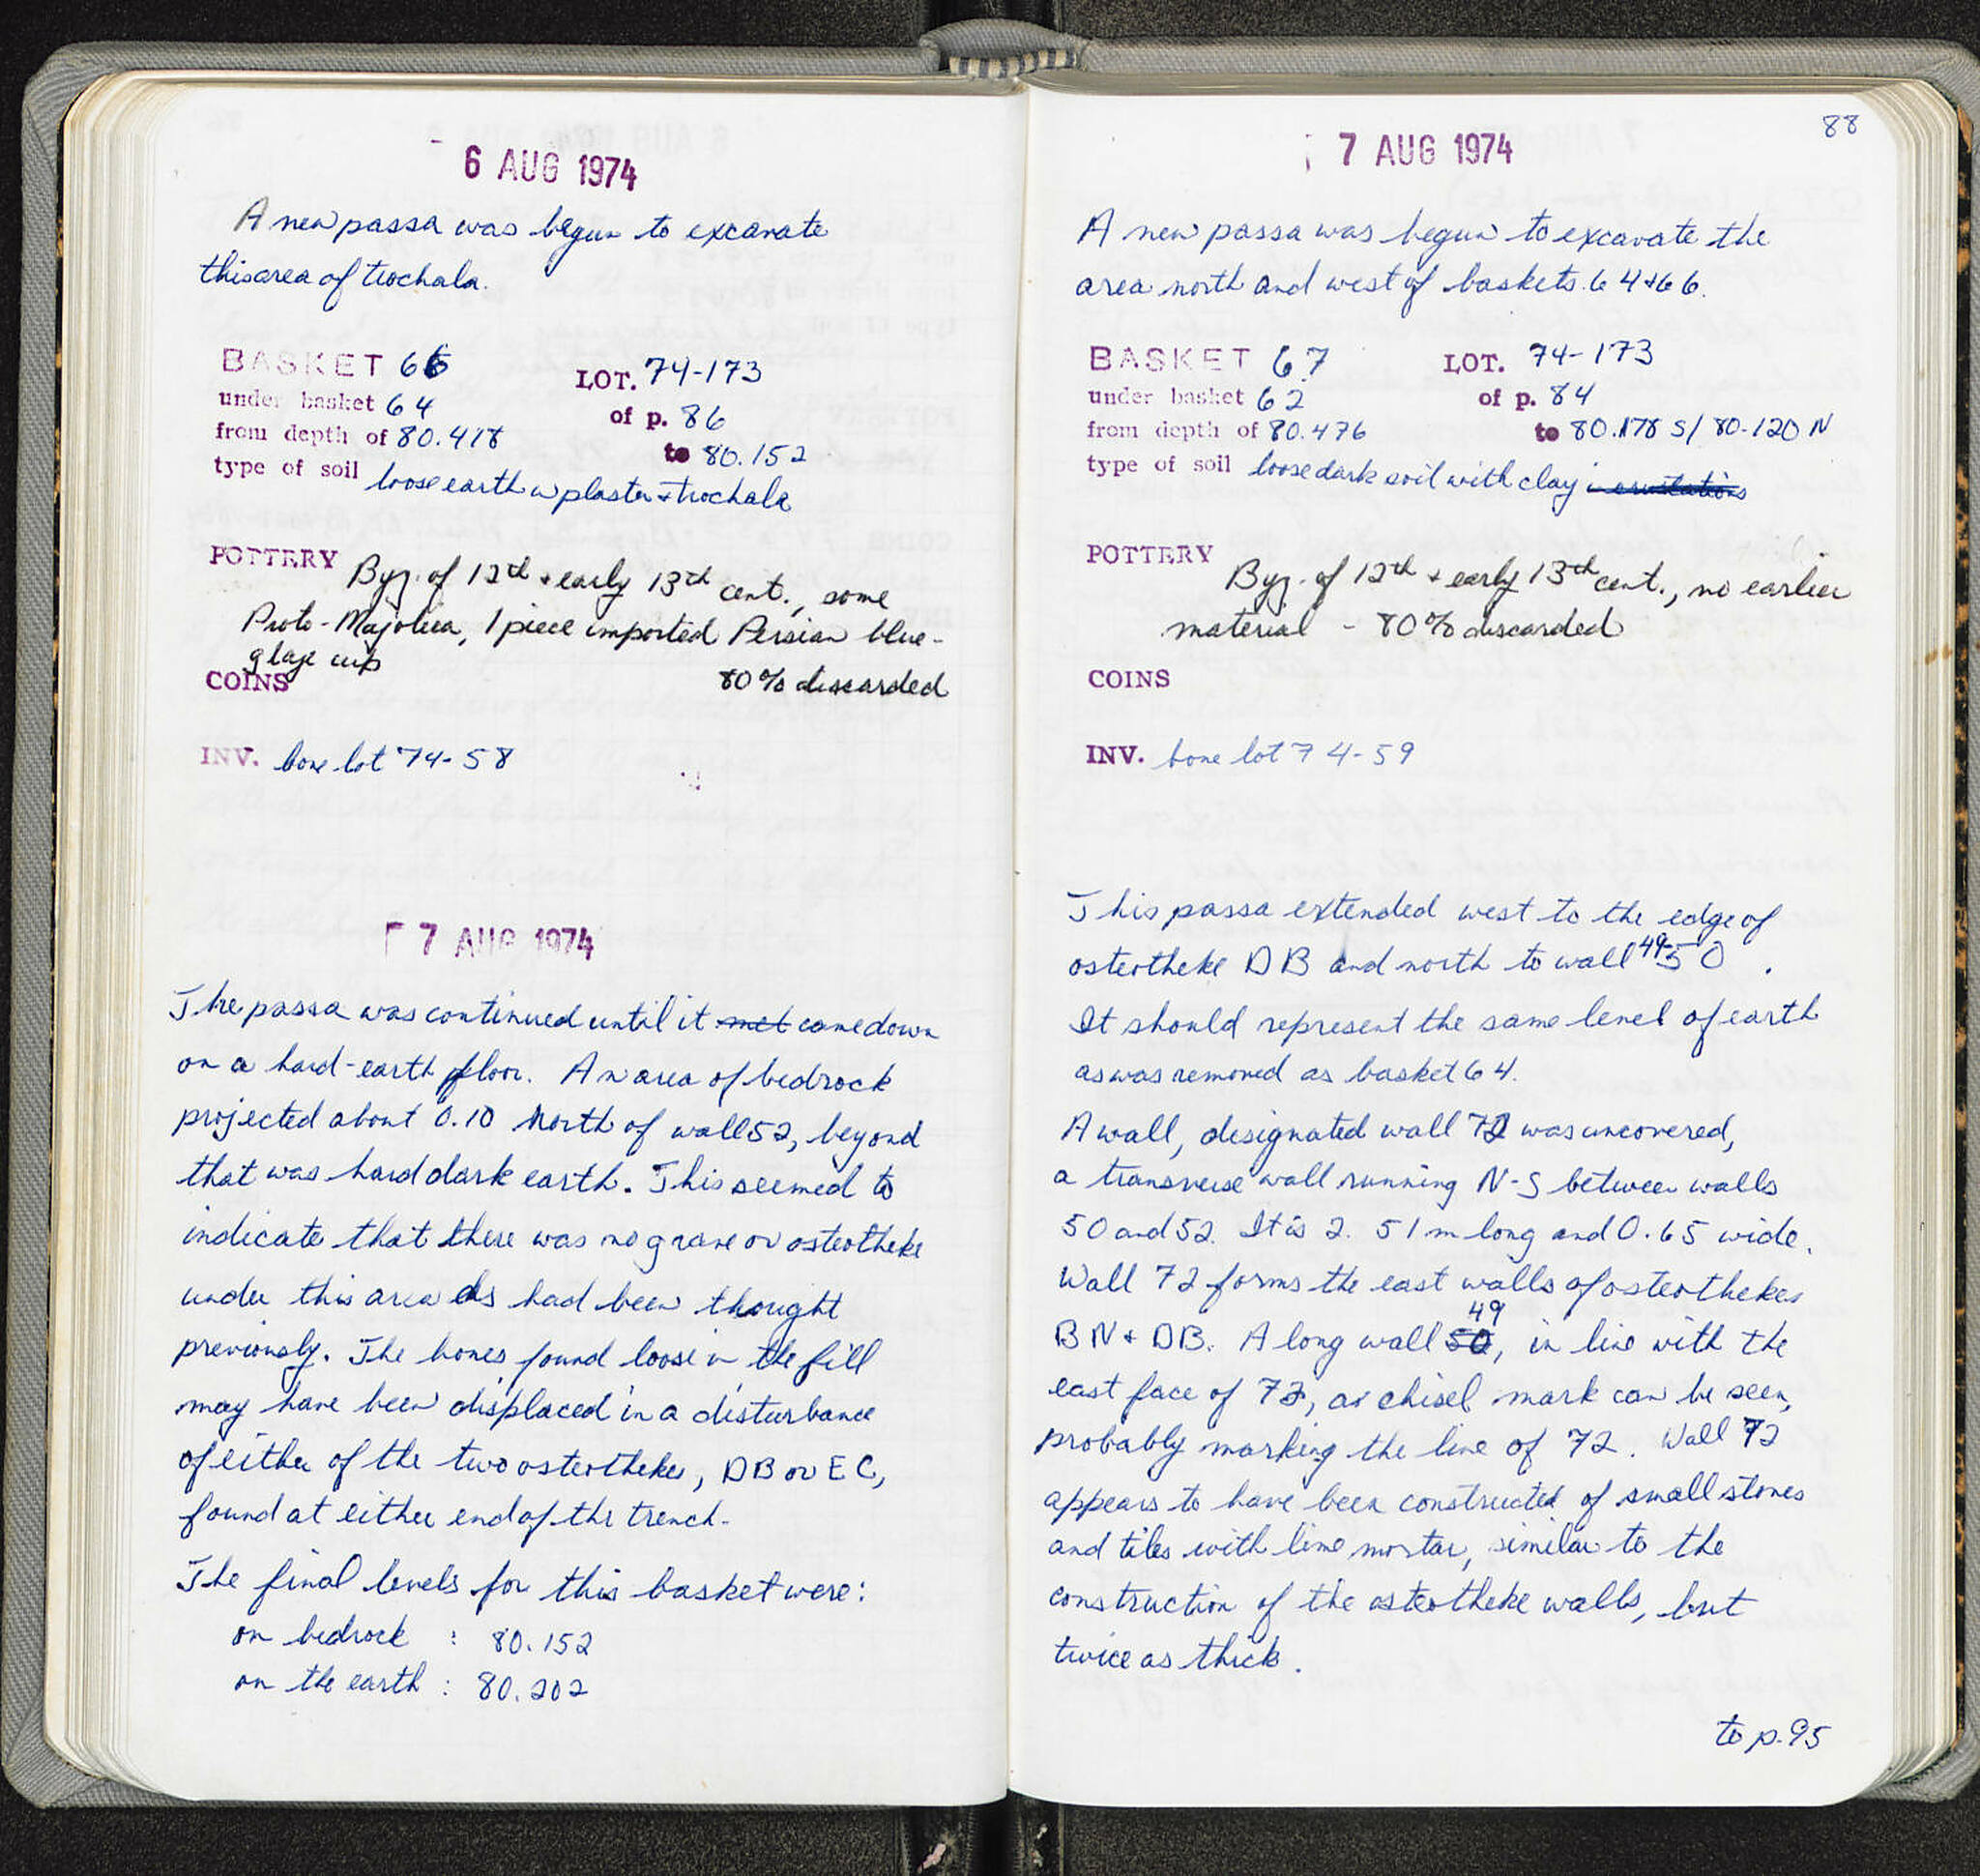 6 AUG 1974
A new passa was begun to excavate
this area of trochala.
BASKET 66 LOT. 74-173
under basket 64 of p. 86
from depth of 80.418 to 80.152
type of soil loose earth w plaster + trochala
POTTERY Byz. of 12th + early 13th cent., some
Proto-Majolica, 1 piece imported Persian blue-
glaze cup
COINS 80% discarded
INV. bone lot 74-58
7 AUG 1974
The passa was continued until it met came down
on a hard-earth floor. An area of bedrock
projected about 0.10 North of wall 52, beyond
that was hard dark earth. This seemed to
indicate that there was no grave or osteotheke
under this area as had been thought
previously. The bones found loose in the fill
may have been displaced in a disturbance
of either of the two osteothekes, DB or EC,
found at either end of the trench.
The final levels for this basket were:
on bedrock : 80.152
on the earth : 80.202
88
7 AUG 1974
A new passa was begun to excavate the
area north and west of baskets 64 + 66.
BASKET 67 LOT. 74-173
under basket 62 of p. 84
from depth of 80.476 to 80.178 S/ 80.120 N
type of soil loose dark soil with clay
POTTERY Byz. of 12th + early 13th cent., no earlier
material - 80% discarded
COINS
INV. bone lot 74-59
This passa extended west to the edge of
osteotheke DB and north to wall 49-50.
It should represent the same level of earth
as was removed as basket 64.
A wall, designated wall 72 was uncovered,
a transverse wall running N-S between walls
50 and 52. It is 2.51 m long and 0.65 wide.
Wall 72 forms the east walls of osteothekes
BN + DB. A long wall 50 49, in line with the
east face of 72, a chisel mark can be seen,
probably marking the line of 72. Wall 72
appears to have been constructed of small stones
and tiles with lime mortar, similar to the
construction of the osteotheke walls, but
twice as thick.
to p. 95